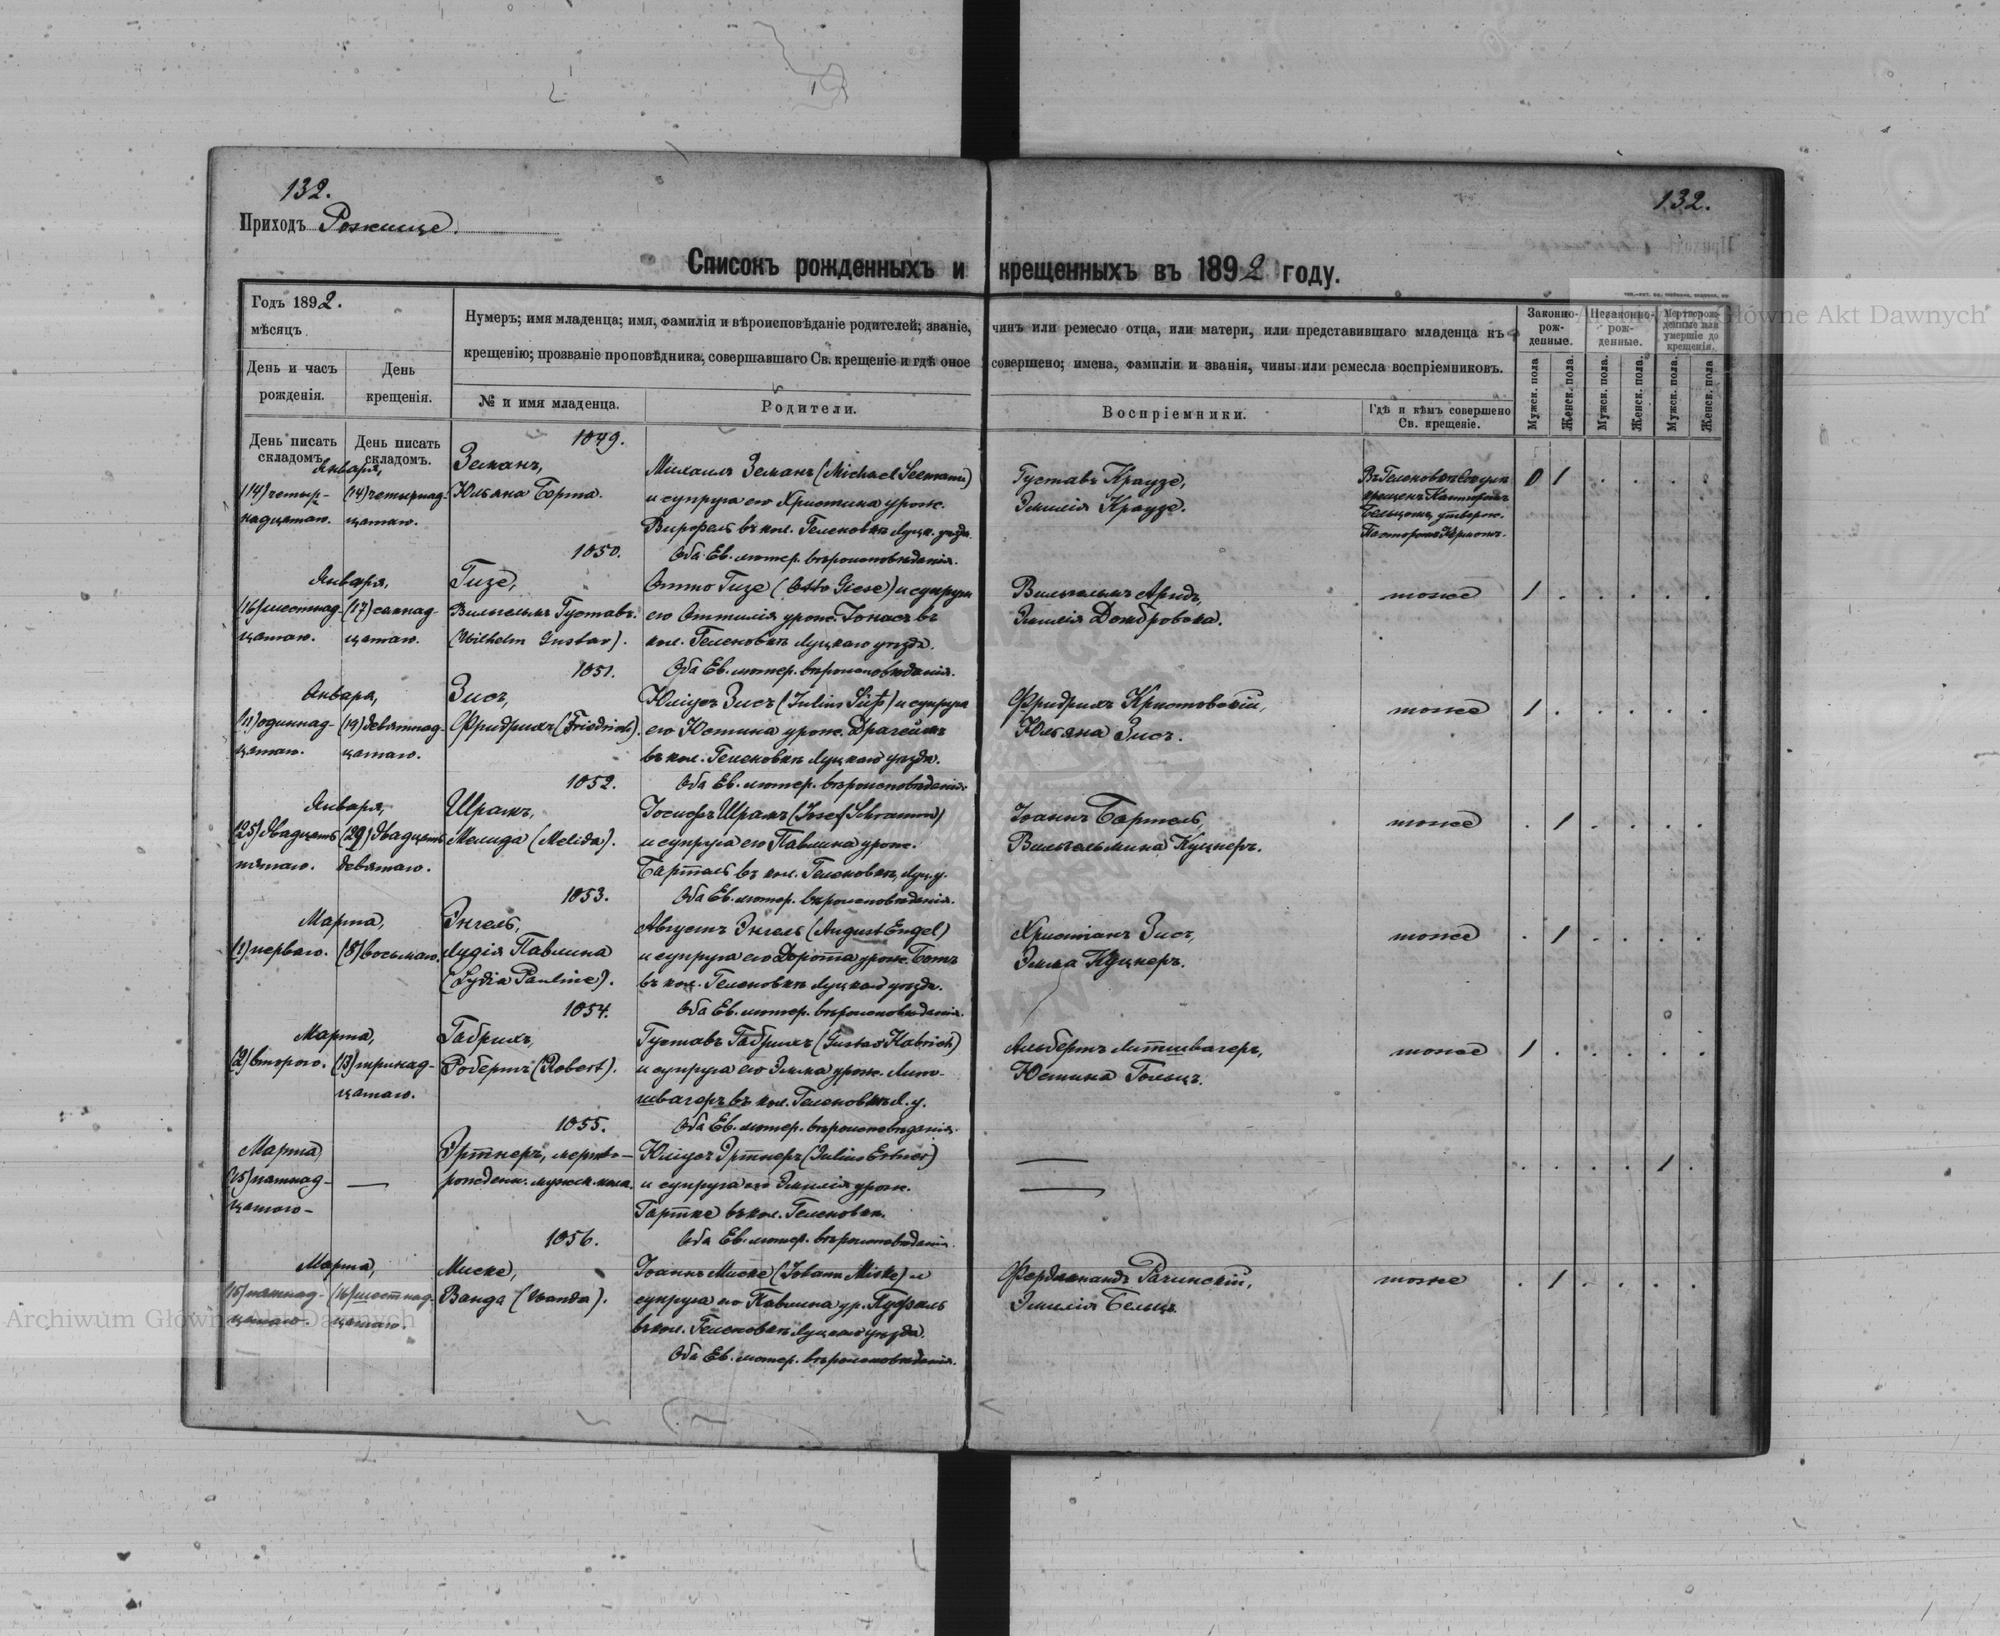 132.
132.
Приходъ Рожище.
Списокъ рожденныхъ и крещенныхъ въ 1892 году.
Годъ 1892.
мѣсяцъ
День и часъ рожденія.
День крещенія.
Нумеръ; имя младенца; имя, фамилія и вѣроисповѣданіе родителей; званіе, чинъ или ремесло отца, или матери, или представившаго младенца къ
крещенію; прозваніе проповѣдника, совершавшаго Св. крещеніе и гдѣ оное совершено; имена, фамиліи и званія, чины или ремесла воспріемниковъ.
№ и имя младенца.
Родители.
Воспріемники.
Гдѣ и кѣмъ совершено Св. крещеніе.
Законно-рож-денные.
Незаконно-рож-денные.
Мертворож-денные или умершіе до крещенія.
Мужск. пола
Женск. пола.
Мужск. пола.
Женск. пола.
Мужск. пола.
Женск. пола.
День писать складомъ.
День писать складомъ.
1049.
Января,
(14) четыр-
надцатаго.
(14) четырнад-
цатаго.
Земанъ,
Юльяна Берта.
Михаилъ Земанъ (Michael Seemann)
и супруга его Христина урож.
въ кол. Геленовкѣ Луцк. уѣзда
Оба Ев. лютер. вѣроисповѣданія.
Густавъ Краузе,
Эмилія Краузе.
0 1 . . . .
1050.
Января,
(16) шестнад-
цатаго.
(17) семнад-
цатаго.
Гизе,
Вильгельмъ Густавъ.
(Wilhelm Gustav).
Отто Гизе (Otto Giese) и супруга
его Оттилія урож. Іонасъ въ
кол. Геленовкѣ Луцкаго уѣзда.
Оба Ев. лютер. вѣроисповѣданія.
Вильгельмъ Арндъ,
Эмилія Домбровска.
тоже
1 . . . . .
1051.
Января,
(11) одиннад-
цатаго.
(19) девятнад-
цатаго.
Зисъ,
Фридрихъ (Friedrich).
Юліусъ Зисъ (Julius Süß) и супруга
его Юстина урож. Драгеймъ
въ кол. Геленовкѣ Луцкаго уѣзда.
Оба Ев. лютер. вѣроисповѣданія.
Фридрихъ Кристовскій,
Юльяна Зисъ.
тоже
1 . . . . .
1052.
Января,
(25) двадцать
пятаго.
(29) двадцать
девятаго.
Шрамъ,
Мелида (Melida).
Іосифъ Шрамъ (Josef Schramm)
и супруга его Павлина урож.
Бартель въ кол. Геленовкѣ, Луц. у.
Оба Ев. лютер. вѣроисповѣданія.
Іоаннъ Бартель,
Вильгельмина Куцнеръ.
тоже
. 1 . . . .
1053.
Марта,
(1) перваго.
(8) восьмаго.
Энгель,
Лудія Павлина
(Lydia Pauline).
Августъ Энгель (August Engel)
и супруга его Дорота урож. Бетъ
въ кол. Геленовкѣ Луцкаго уѣзда.
Оба Ев. лютер. вѣроисповѣданія.
Христіанъ Зисъ,
Эмма Куцнеръ.
тоже
. 1 . . . .
1054.
Марта,
(2) втораго.
(13) тринад-
цатаго.
Габрихъ,
Робертъ (Robert).
Густавъ Габрихъ (Gustav Habrich)
и супруга его Эмма урож. Лит-
швагеръ въ кол. Геленовкѣ Л. у.
Оба Ев. лютер. вѣроисповѣданія.
Альбертъ Литшвагеръ,
Юстина Гольцъ.
тоже
1 . . . . .
1055.
Марта
(15) пятнад-
цатого —
—
Эртнеръ, мертво-
рожденн. мужск. пола.
Юліусъ Эртнеръ (Julius Ertner)
и супруга его Эмилія урож.
Гартке въ кол. Геленовкѣ.
Оба Ев. лютер. вѣроисповѣданія.
—
—
. . . . 1 .
1056.
Марта,
(15) пятнад-
цатаго.
(16) шестнад-
цатаго.
Миске,
Ванда (Wanda).
Іоаннъ Миске (Johann Miske) и
супруга его Павлина ур. Пуфаль
въ кол. Геленовкѣ Луцкаго уѣзда.
Оба Ев. лютер. вѣроисповѣданія.
Фердинандъ Рачинскій,
Эмилія Бельцъ.
тоже
. 1 . . . .
Archiwum Główne Akt Dawnych
Archiwum Główne Akt Dawnych